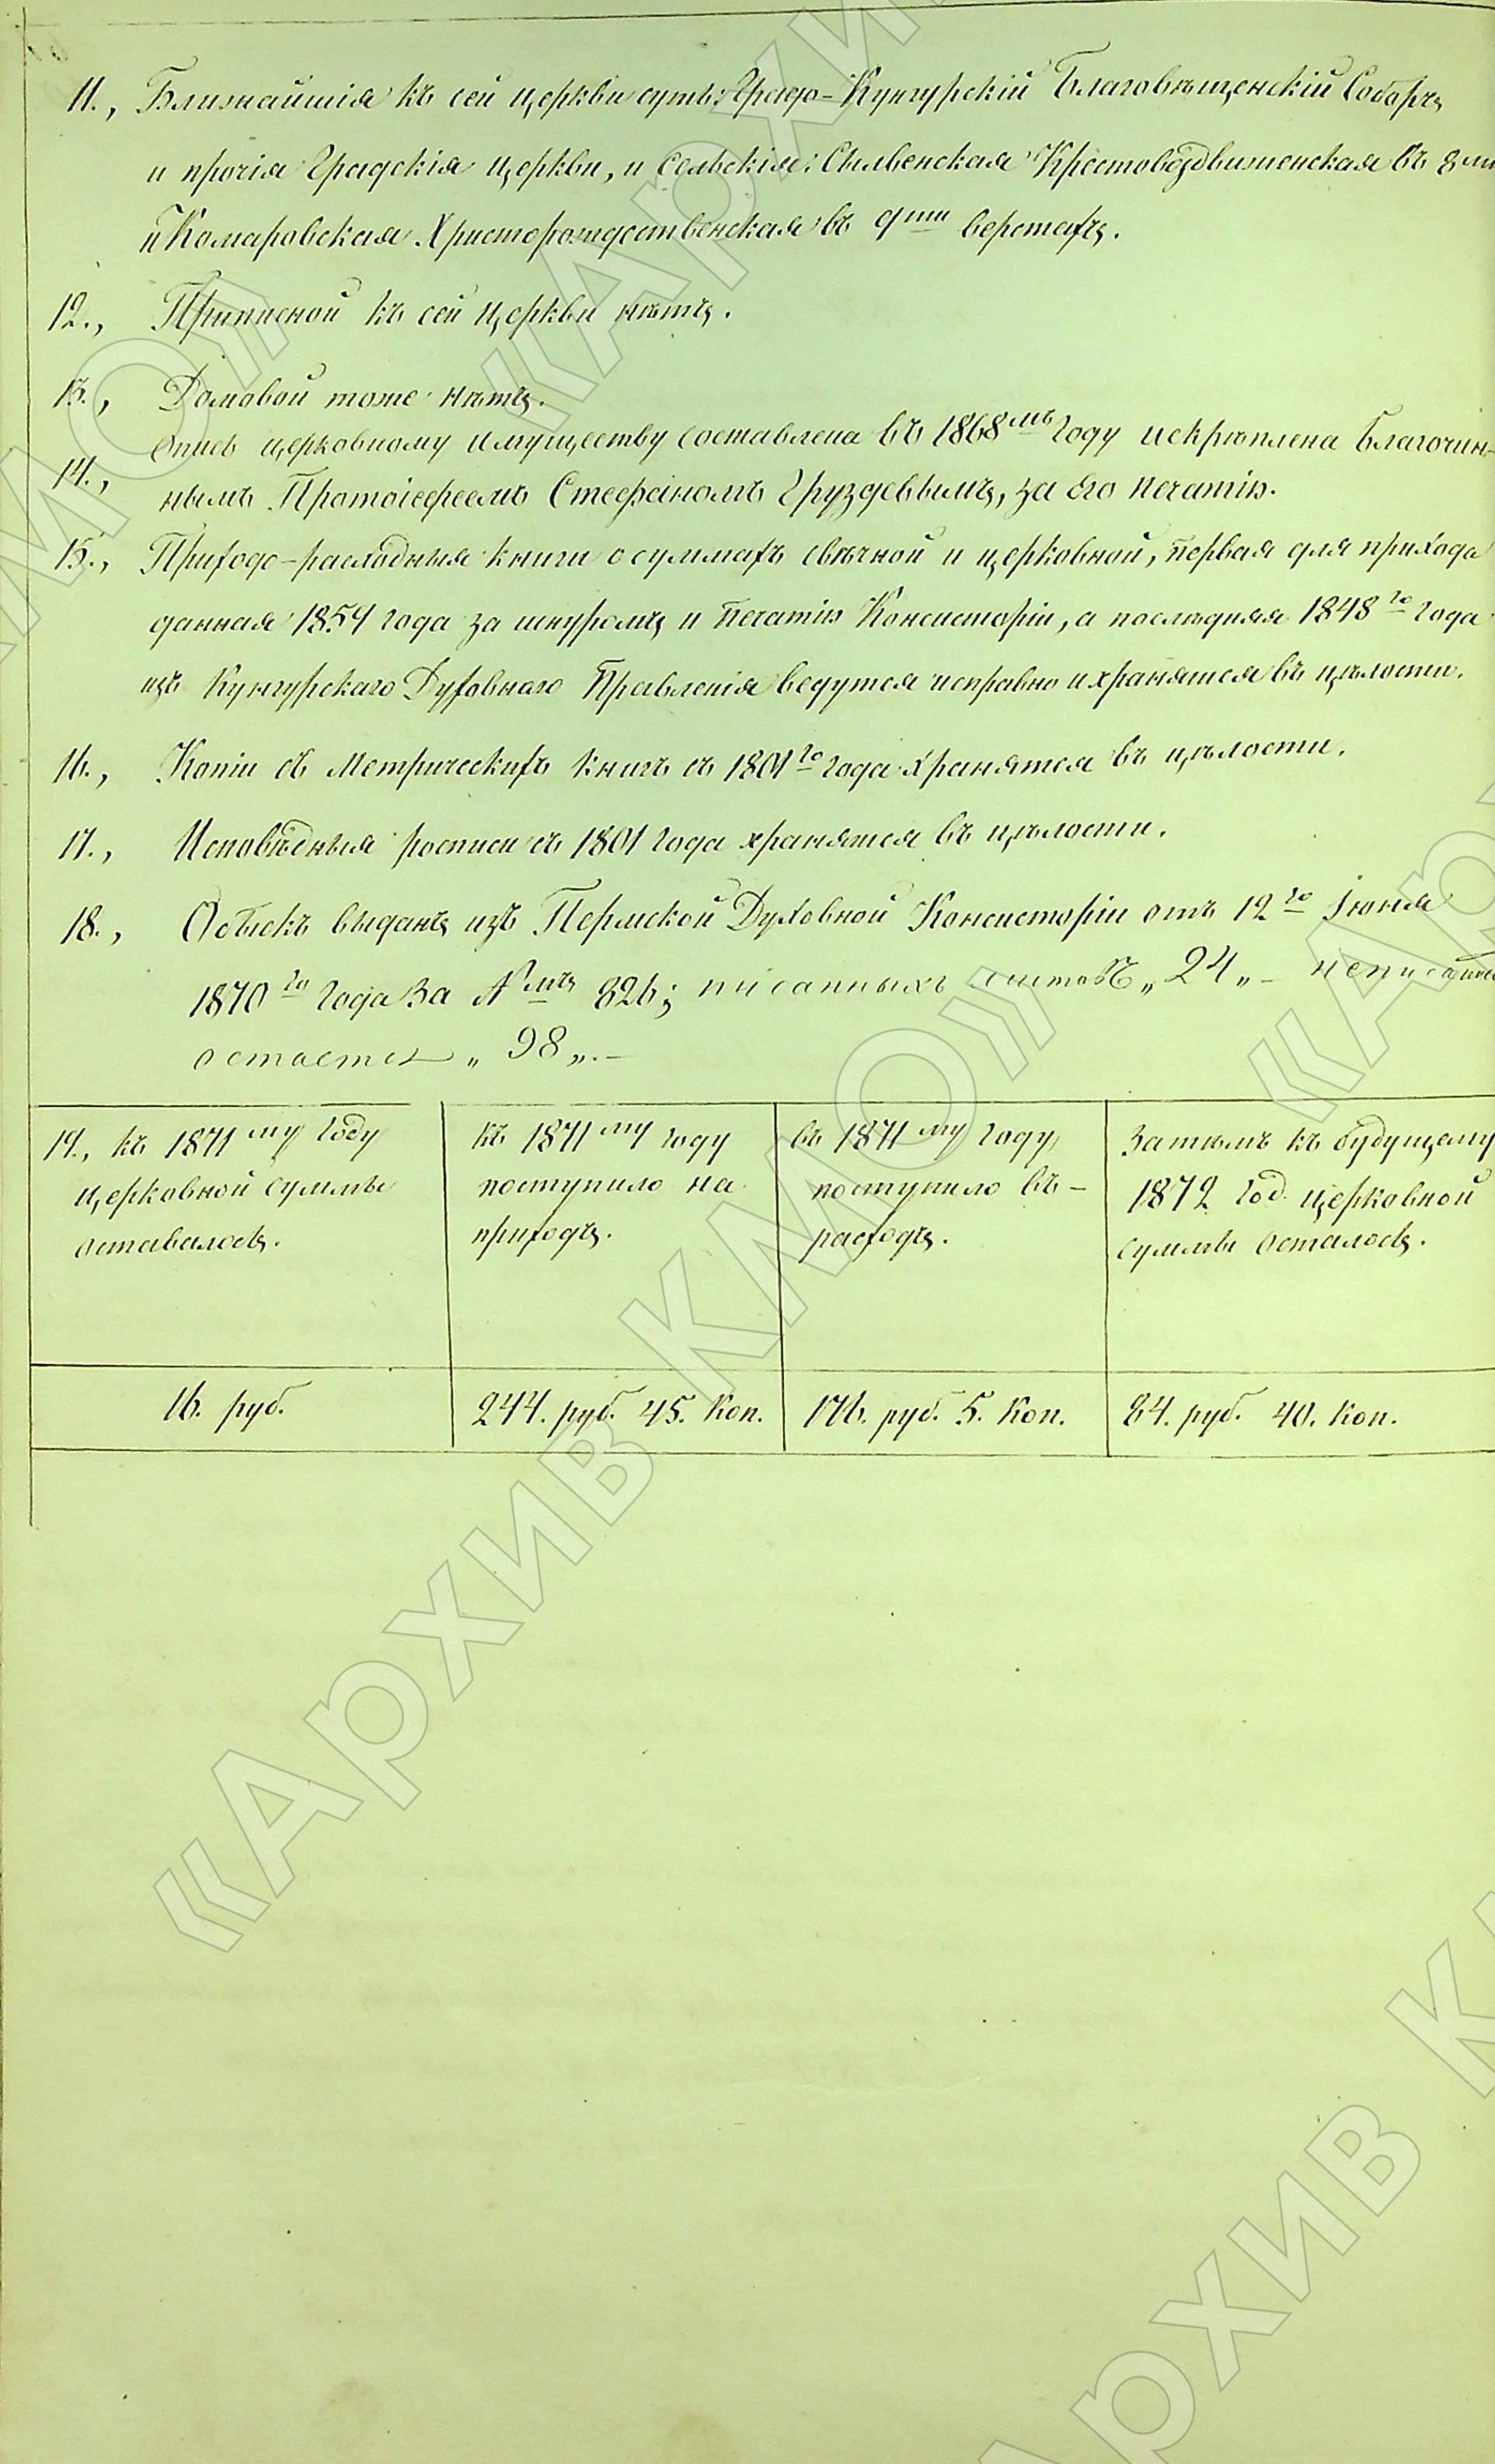 11., Ближайшія къ сей церкви суть: Градо-Кунгурскій Благовѣщенскій Соборъ
и прочія Градскія церкви, и Сельскія: Сылвенская Крестовоздвиженская въ 8ми
и Комаровская Христорождественская въ 9ти верстахъ.
12., Приписной къ сей церкви нѣтъ.
13., Домовой тоже нѣтъ.
14., Опись церковному имуществу составлена въ 1868мъ Году и скрѣплена Благочин-
нымъ Протоіереемъ Стефаномъ Груздевымъ, за Его печатію.
15., Приходо-расходныя книги о суммахъ свѣчной и церковной, первая для прихода
данная 1854 года за шнуромъ и печатію Консисторіи, а послѣдняя 1848го Года
изъ Кунгурскаго Духовнаго Правленія ведутся исправно и хранятся въ цѣлости.
16., Копіи съ Метрическихъ книгъ съ 1801го Года хранятся въ цѣлости.
17., Исповѣдныя росписи съ 1801 Года хранятся въ цѣлости.
18., Обыскъ выданъ изъ Пермской Духовной Консисторіи отъ 12го Іюня
1870го Года За Nмъ 826; писанныхъ листовъ „24„- неписанныхъ
остается „98„.-
19., къ 1871му Году
церковной Суммы
оставалось.
къ 1871му году
поступило на
приходъ.
въ 1871му Году
поступило въ-
расходъ.
Затѣмъ къ будущему
1872 Год. церковной
суммы осталось.
16. руб.
244. руб. 45. Коп.
176. руб. 5. Коп.
84. руб. 40. Коп.
«Архив КМО»